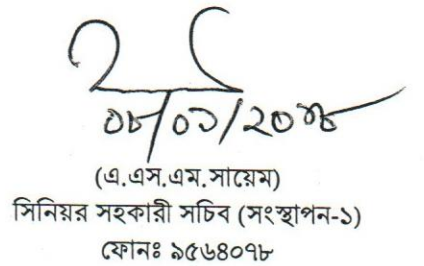 ০৮/০১/২০১৮
(এ.এস.এম.সায়েম)
সিনিয়র সহকারী সচিব (সংস্থাপন-১)
ফোনঃ ৯৫৬৪০৭৮